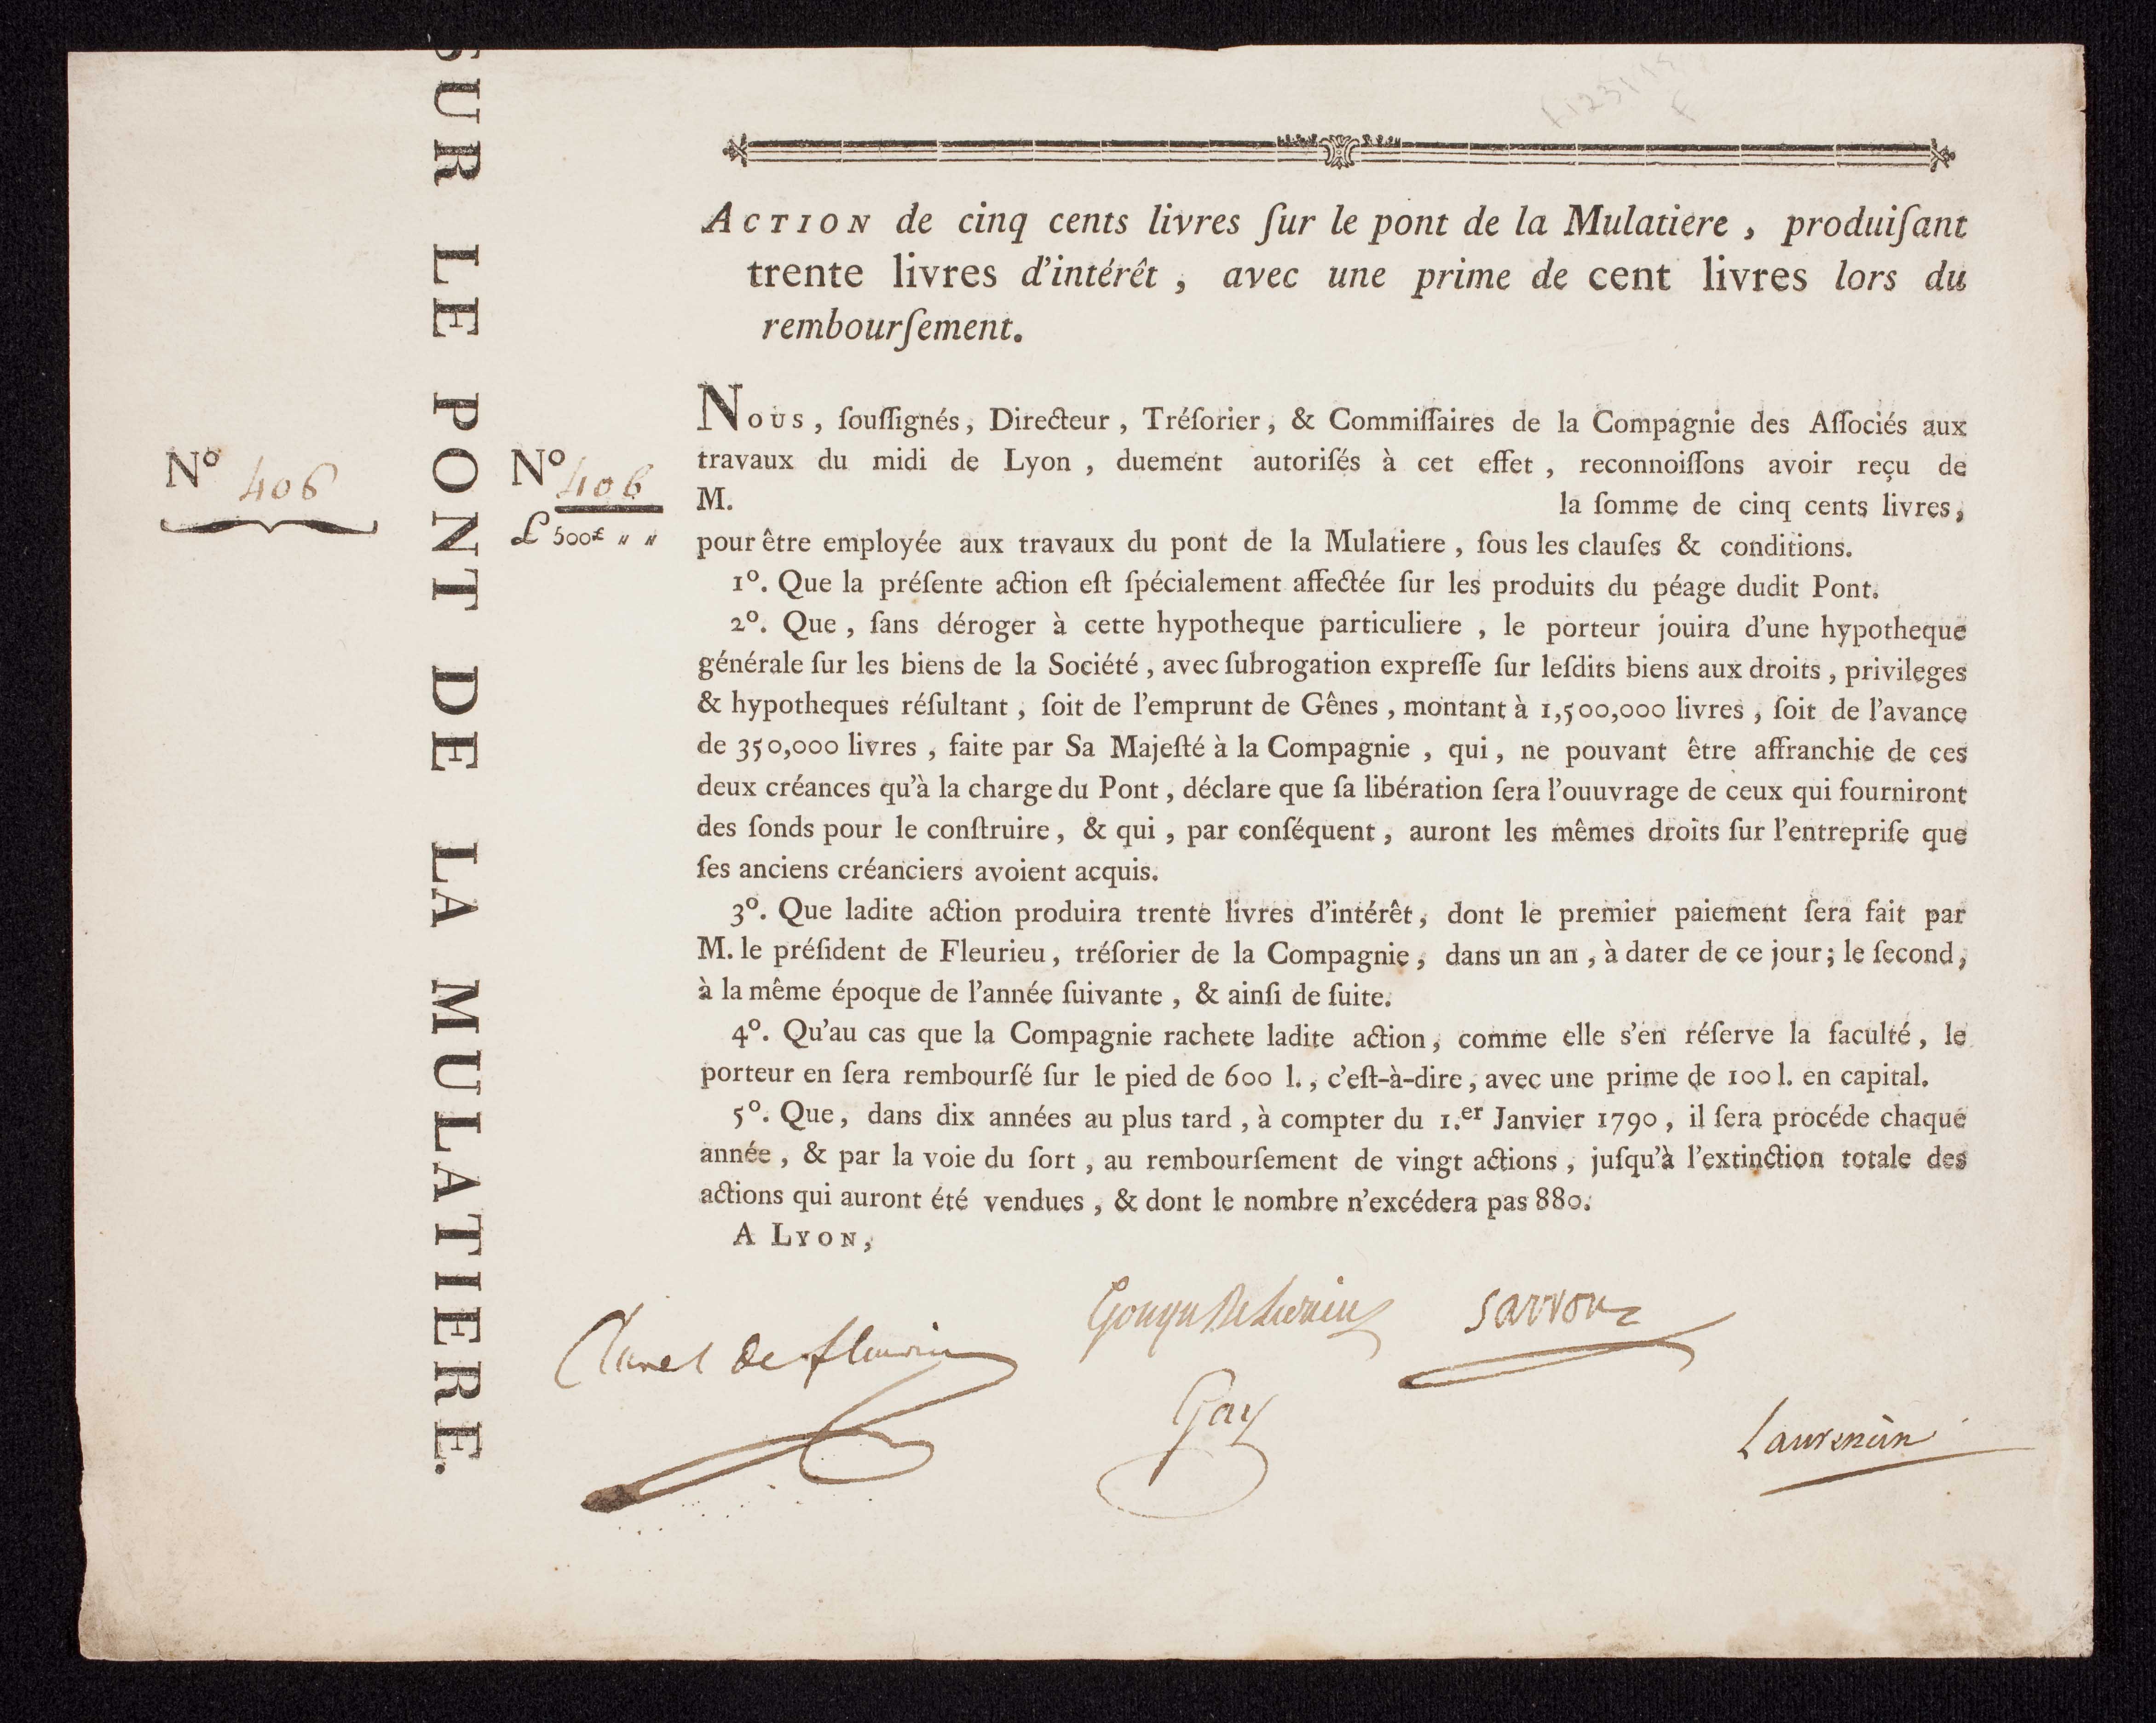 SUR LE PONT DE LA MULATIERE.
Nº 406
Nº 406
£ 500£ " "
ACTION de cinq cents livres ſur le pont de la Mulatiere, produiſant
trente livres d'intérêt, avec une prime de cent livres lors du
rembourſement.
NOUS, ſouſſignés, Directeur, Tréſorier, & Commiſſaires de la Compagnie des Aſſociés aux
travaux du midi de Lyon, duement autoriſés à cet effet, reconnoiſſons avoir reçu de
M. la ſomme de cinq cents livres,
pour être employée aux travaux du pont de la Mulatiere, ſous les clauſes & conditions.
1º. Que la préſente action eſt ſpécialement affectée ſur les produits du péage dudit Pont.
2º. Que, ſans déroger à cette hypotheque particuliere, le porteur jouira d'une hypotheque
générale ſur les biens de la Société, avec ſubrogation expreſſe ſur leſdits biens aux droits, privileges
& hypotheques réſultant, ſoit de l'emprunt de Gênes, montant à 1,500,000 livres, ſoit de l'avance
de 350,000 livres, faite par Sa Majeſté à la Compagnie, qui, ne pouvant être affranchie de ces
deux créances qu'à la charge du Pont, déclare que ſa libération ſera l'ouuvrage de ceux qui fourniront
des fonds pour le conſtruire, & qui, par conſéquent, auront les mêmes droits ſur l'entrepriſe que
ſes anciens créanciers avoient acquis.
3º. Que ladite action produira trente livres d'intérêt, dont le premier paiement ſera fait par
M. le préſident de Fleurieu, tréſorier de la Compagnie, dans un an, à dater de ce jour; le ſecond,
à la même époque de l'année ſuivante, & ainſi de ſuite.
4º. Qu'au cas que la Compagnie rachete ladite action, comme elle s'en réſerve la faculté, le
porteur en ſera rembourſé ſur le pied de 600 l., c'eſt-à-dire, avec une prime de 100 l. en capital.
5º. Que, dans dix années au plus tard, à compter du 1.er Janvier 1790, il ſera procéde chaque
année, & par la voie du ſort, au rembourſement de vingt actions, juſqu'à l'extinction totale des
actions qui auront été vendues, & dont le nombre n'excédera pas 880.
A LYON,
Claret de fleurieu
Sarron
Gay
Laurencin